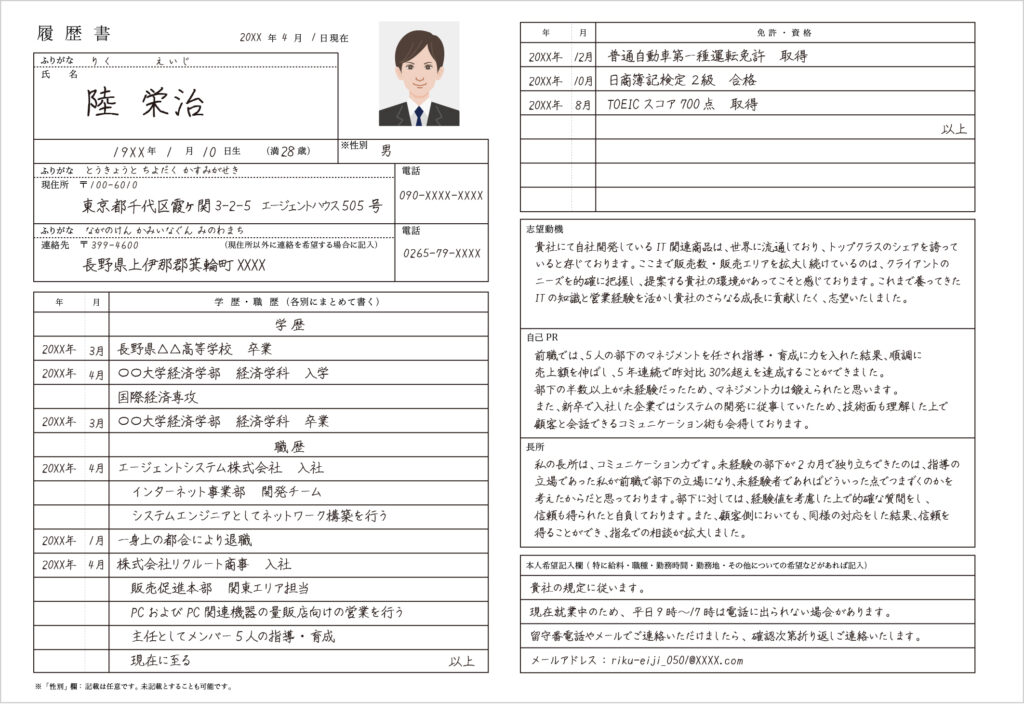 履歴書
20XX 年 4 月 1 日現在
ふりがな りく えいじ
氏 名
陸 栄治
19XX 年 1 月 10 日生 (満 28 歳)
※性別 男
ふりがな とうきょうと ちよだく かすみがせき
現住所 〒100-6010
東京都千代区霞ヶ関 3-2-5 エージェントハウス 505 号
電話
090-XXXX-XXXX
ふりがな ながのけん かみいなぐん みのわまち
連絡先 〒399-4600 (現住所以外に連絡を希望する場合に記入)
長野県上伊那郡箕輪町 XXXX
電話
0265-79-XXXX
年 月 学 歴・職 歴(各別にまとめて書く)
学 歴
20XX年 3月 長野県△△高等学校 卒業
20XX年 4月 〇〇大学経済学部 経済学科 入学
国際経済専攻
20XX年 3月 〇〇大学経済学部 経済学科 卒業
職 歴
20XX年 4月 エージェントシステム株式会社 入社
インターネット事業部 開発チーム
システムエンジニアとしてネットワーク構築を行う
20XX年 1月 一身上の都合により退職
20XX年 4月 株式会社リクルート商事 入社
販売促進本部 関東エリア担当
PC および PC 関連機器の量販店向けの営業を行う
主任としてメンバー 5 人の指導・育成
現在に至る 以上
※「性別」欄:記載は任意です。未記載とすることも可能です。
年 月 免 許・資 格
20XX年 12月 普通自動車第一種運転免許 取得
20XX年 10月 日商簿記検定 2 級 合格
20XX年 8月 TOEIC スコア 700 点 取得
以上
志望動機
貴社にて自社開発している IT 関連商品は、世界に流通しており、トップクラスのシェアを誇って
いると存じております。ここまで販売数・販売エリアを拡大し続けているのは、クライアントの
ニーズを的確に把握し、提案する貴社の環境があってこそと感じております。これまで養ってきた
IT の知識と営業経験を活かし貴社のさらなる成長に貢献したく、志望いたしました。
自己 PR
前職では、5 人の部下のマネジメントを任され指導・育成に力を入れた結果、順調に
売上額を伸ばし、5 年連続で昨対比 30%超えを達成することができました。
部下の半数以上が未経験だったため、マネジメント力は鍛えられたと思います。
また、新卒で入社した企業ではシステムの開発に従事していたため、技術面も理解した上で
顧客と会話できるコミュニケーション術も会得しております。
長所
私の長所は、コミュニケーション力です。未経験の部下が 2 カ月で独り立ちできたのは、指導の
立場であった私が前職で部下の立場になり、未経験者であればどういった点でつまずくのかを
考えたからだと思っております。部下に対しては、経験値を考慮した上で的確な質問をし、
信頼も得られたと自負しております。また、顧客側においても、同様の対応をした結果、信頼を
得ることができ、指名での相談が拡大しました。
本人希望記入欄(特に給料・職種・勤務時間・勤務地・その他についての希望などがあれば記入)
貴社の規定に従います。
現在就業中のため、平日 9 時〜17 時は電話に出られない場合があります。
留守番電話やメールでご連絡いただけましたら、確認次第折り返しご連絡いたします。
メールアドレス : riku-eiji_050/@XXXX.com